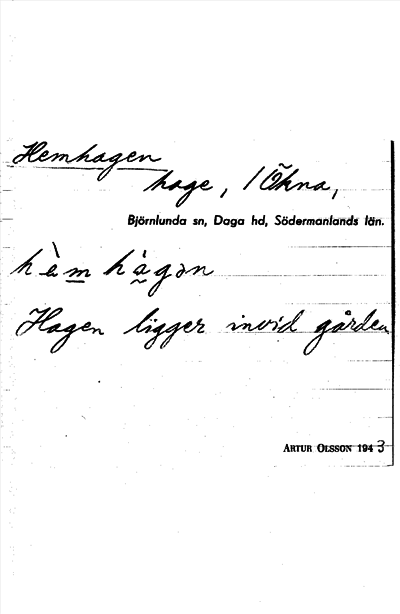 Hemhagen
hage, 1 Ökna,
Björnlunda sn, Daga hd, Södermanlands län.
hὲm hàgən
Hagen ligger invid gården
ARTUR OLSSON 1943